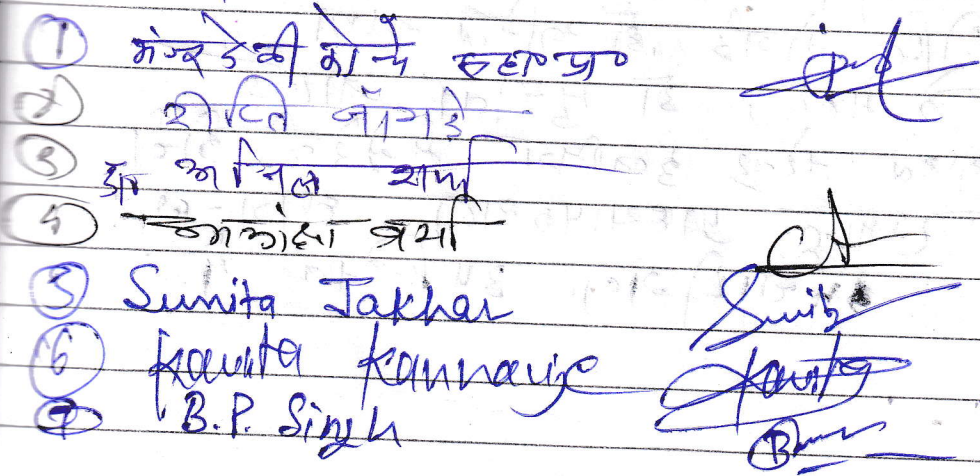 ① मंजू देवी कोचे सहा० प्रा०
② दीप्ति जांगड़े
③ डॉ अनिल शर्मा
④ आकांक्षा वर्मा
⑤ Sunita Jakhar Sunita
⑥ Kavita Kannauje Kavita
⑦ B.P. Singh